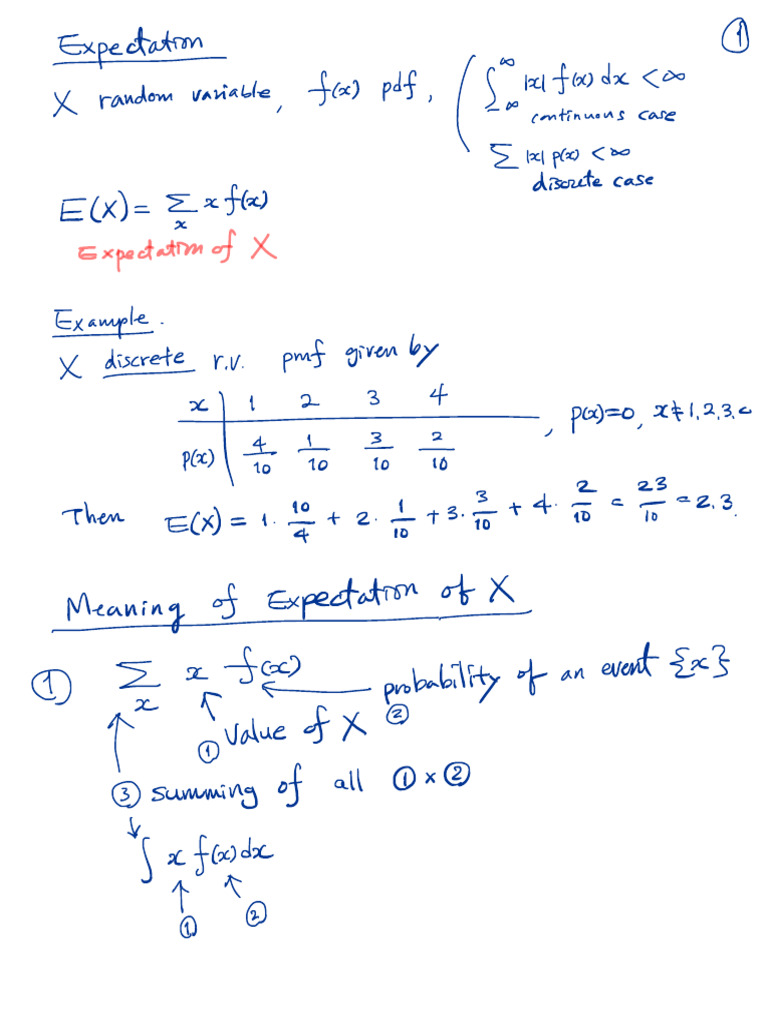 ①
Expectation
X random variable, f(x) pdf, ( ∫_{-∞}^{∞} |x| f(x) dx < ∞
continuous case
Σ |x| p(x) < ∞
discrete case
E(X) = Σ_x x f(x)
Expectation of X
Example.
X discrete r.v. pmf given by
x | 1 2 3 4
p(x) | 4/10 1/10 3/10 2/10 , p(x)=0, x≠1,2,3,4
Then E(X) = 1· 10/4 + 2· 1/10 + 3· 3/10 + 4· 2/10 = 23/10 = 2.3.
Meaning of Expectation of X
① Σ_x x f(x) ← probability of an event {x}
②
① Value of X
③ summing of all ① × ②
∫ x f(x) dx
① ②